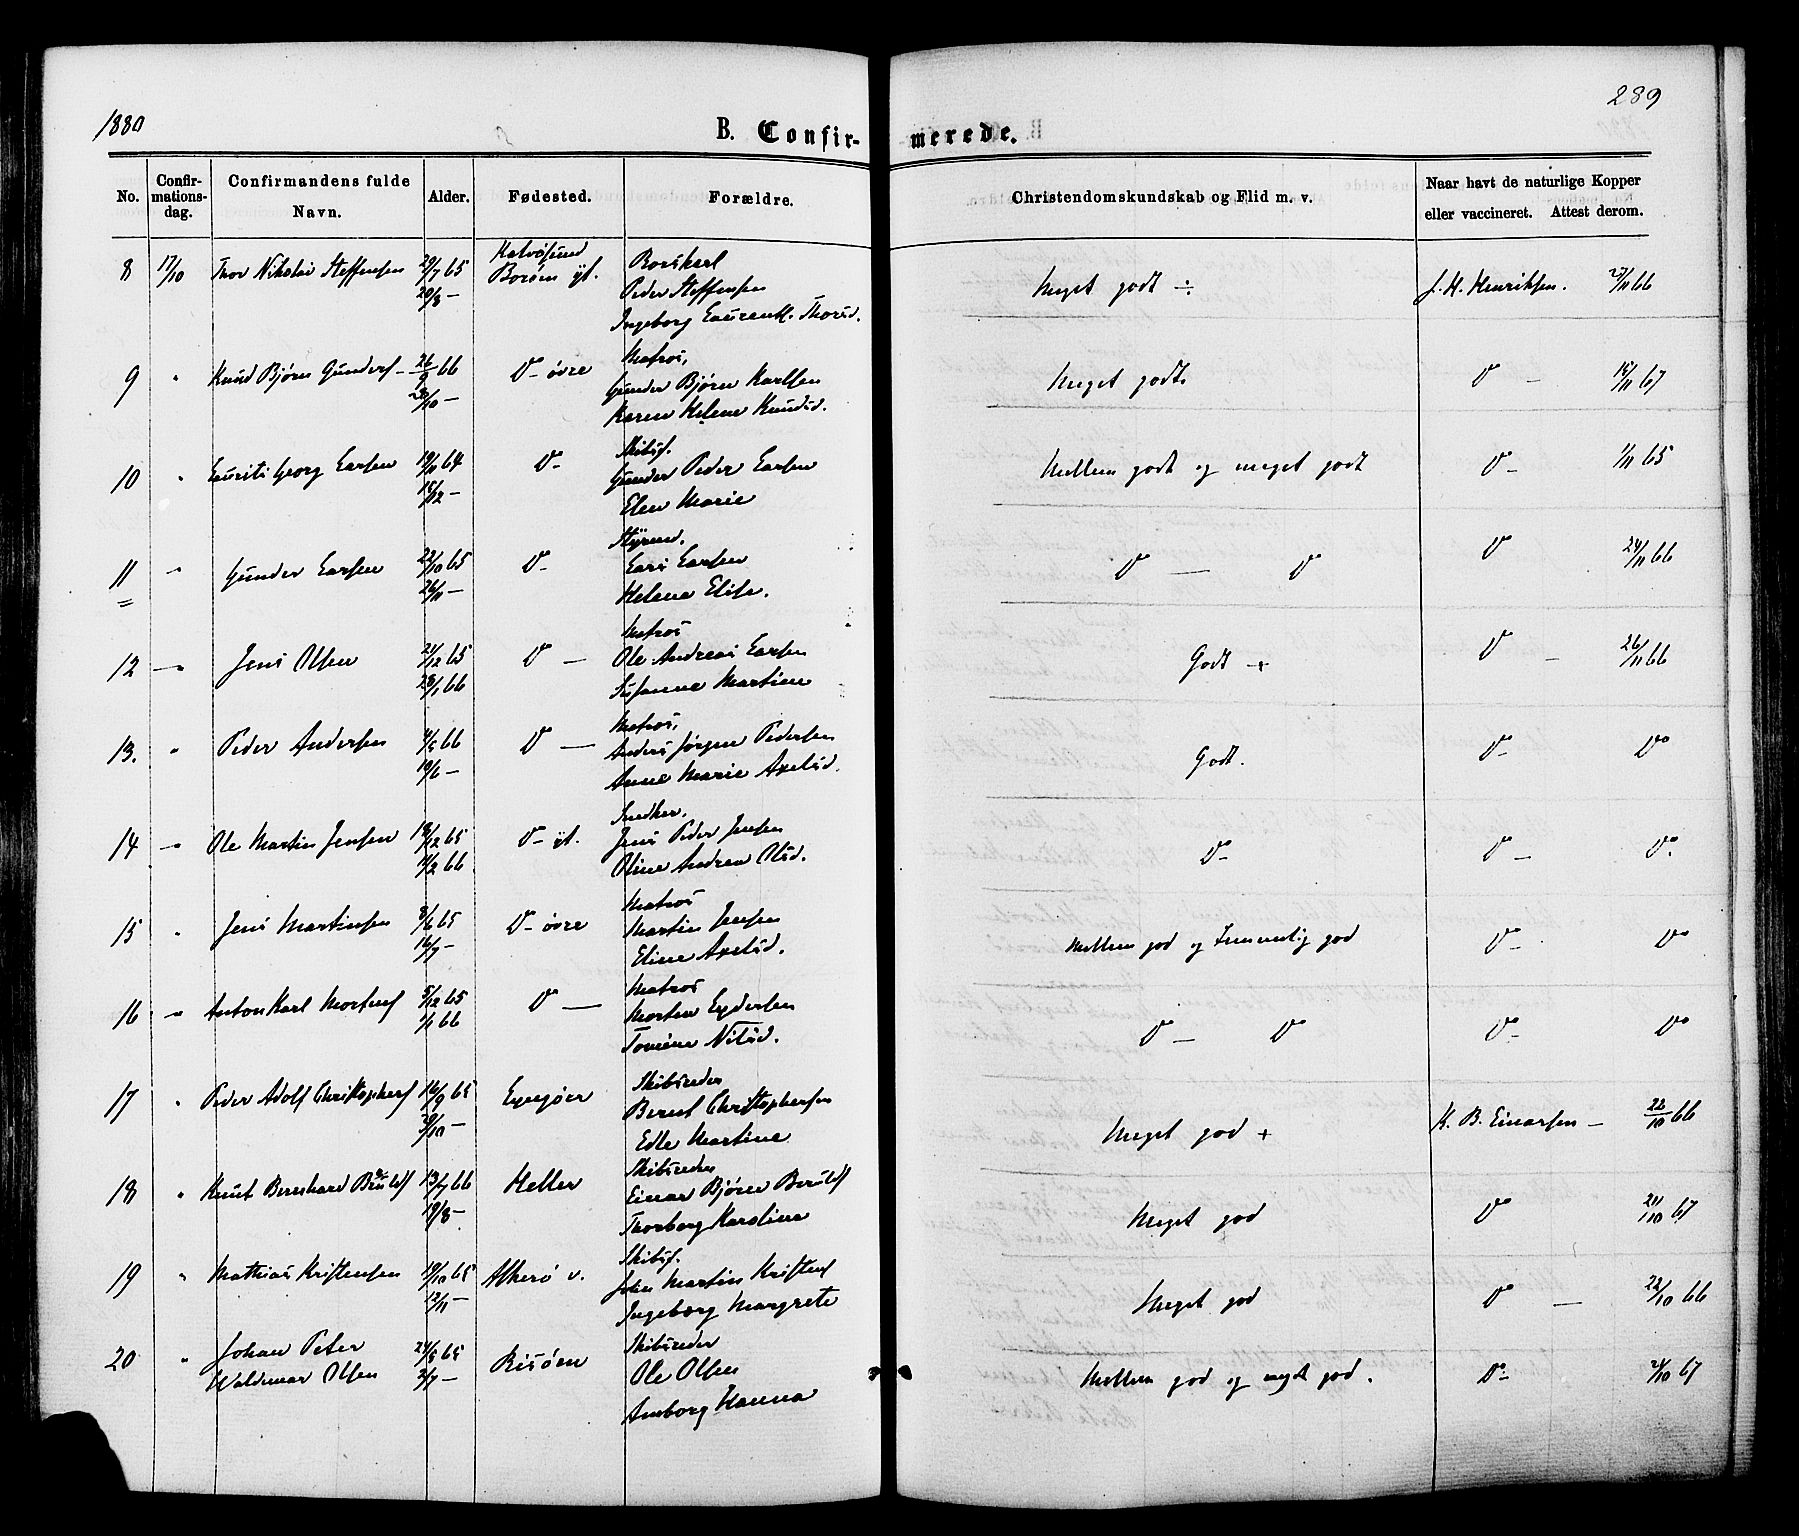 1880
289
B. Confir-merede.
No. Confir-mations-dag. Confirmandens fulde Navn. Alder. Fødested. Forældre. Christendomskundskab og Flid m. v. Naar havt de naturlige Kopper eller vaccineret. Attest derom.
8 17/10 Thor Nikolai Steffensen 29/7 65 Kalvøsund
20/8 — Borøen yt.
Peder Steffensen
Meget godt ÷ J. H. Henriksen. 27/11 66
9 " Knud Bjørn Gunders 26/9 66 D- øvre Matros,
28/10 — Gunder Bjørn Karlsen
Karen Helene Knudsd.
Meget godt D — 15/11 67
10 " Laurits Georg Larsen 19/11 64 D- Skibsf.
15/12 — Gunder Peder Larsen
Elen Marie
Mellem godt og meget godt D- 1/11 65
11 " Gunder Larsen 22/10 65 D- Styrmd.
26/11 — Lars Larsen
Helene Elise.
D — D D 24/11 66
12 — " Jens Olsen 21/12 65 D — Matros
28/1 66 Ole Andreas Larsen
Susanne Martine
Godt + D — 26/11 66
13. " Peder Andersen 4/5 66 D — Matros,
10/6 — Anders Jørgen Pedersen
Anne Marie Axelsd.
Godt. D- Do
14 — " Ole Martin Jensen 18/12 65 D- yt. Snedker.
11/2 66 Jens Peder Jensen
Oline Andrea Olsd.
D- D — Do.
15 " Jens Martinsen 8/6 65 D- øvre Matros
16/7 — Martin Jensen
Eline Axelsd.
Mellem god og Temmelig god D- Do
16 " Anton Karl Mortens 5/12 65 D — Matros
1/1 66 Morten Eydersen
Tomine Nilsd.
D — D D- Do
17 " Peder Adolf Christophers 16/9 65 Lyngøer Skibsreder
/10 — Bernt Christophersen
Edle Martine
Meget god + K. B. Einarsen — 22/10 66
18 " Knut Bernhard 13/7 66 Heller Skibsreder
19/8 — Einar Bjørn
Thorborg Karoline
Meget god D 21/10 67
19 " Mathias Kristensen 19/10 65 Askerø v. Skibsf.
12/11 — John Martin Kristens
Ingeborg Margrete
Meget god D — 22/10 66
20 " Johan Peter 24/5 65 Risøen Skibsreder
Waldemar Olsen 2/7 — Ole Olsen
Amborg Hanna
Mellem god og meget god. D- 21/10 67